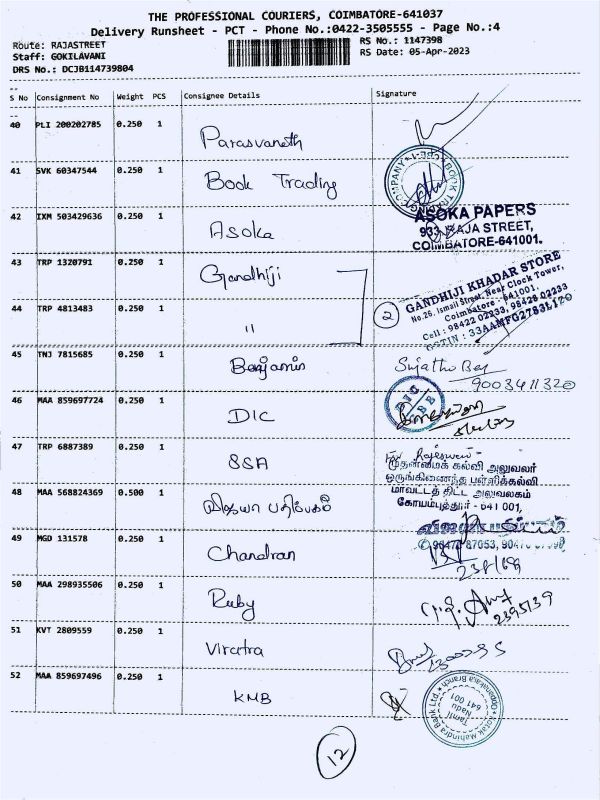 THE PROFESSIONAL COURIERS, COIMBATORE-641037
Delivery Runsheet - PCT - Phone No.:0422-3505555 - Page No.:4
Route: RAJASTREET RS No.: 1147398
Staff: GOKILAVANI RS Date: 05-Apr-2023
DRS No.: DCJB114739804
S No Consignment No Weight PCS Consignee Details Signature
40 PLI 200202785 0.250 1 Parasvanath
41 SVK 60347544 0.250 1 Book Trading
42 IXM 503429636 0.250 1 Asoka
ASOKA PAPERS
933, RAJA STREET,
COIMBATORE-641001.
43 TRP 1320791 0.250 1 Gandhiji
GANDHIJI KHADAR STORE
No.26, Ismail Street, Near Clock Tower,
Coimbatore - 641001.
Cell : 98422 02233, 98426 02233
GSTIN : 33AAMFG2783L1Z0
44 TRP 4813483 0.250 1 " 2
45 TNJ 7815685 0.250 1 Benjamin
9003411320
46 MAA 859697724 0.250 1 DIC
47 TRP 6887389 0.250 1 SSA
For Rajeswari
முதன்மைக் கல்வி அலுவலர்
ஒருங்கிணைந்த பள்ளிக்கல்வி
மாவட்டத் திட்ட அலுவலகம்
கோயம்புத்தூர் - 641 001,
48 MAA 568824369 0.500 1 விஜயா பதிப்பகம்
விஜயா பதிப்பகம்
49 MGD 131578 0.250 1 Chandran
50 MAA 298935506 0.250 1 Ruby
2395139
51 KVT 2809559 0.250 1 Viratra
52 MAA 859697496 0.250 1 KMB
Kotak Mahindra Bank Ltd.
Oppanakara Branch
Tamil
Nadu
641 001
12